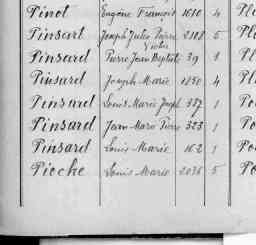 Pinot Eugène François 1610 4 Pl
Pinsart Joseph Jules Pierre 2108 5 Pl
Victor
Pinsard Pierre Jean Baptiste 39 1 Pl
Pinsard Joseph Marie 1850 4 Pl
Pinsard Louis Marie Joseph 387 1 Po
Pinsard Jean Marie Pierre 323 1 Po
Pinsard Louis Marie 162 1 Po
Pioche Louis Marie 2036 5 Po